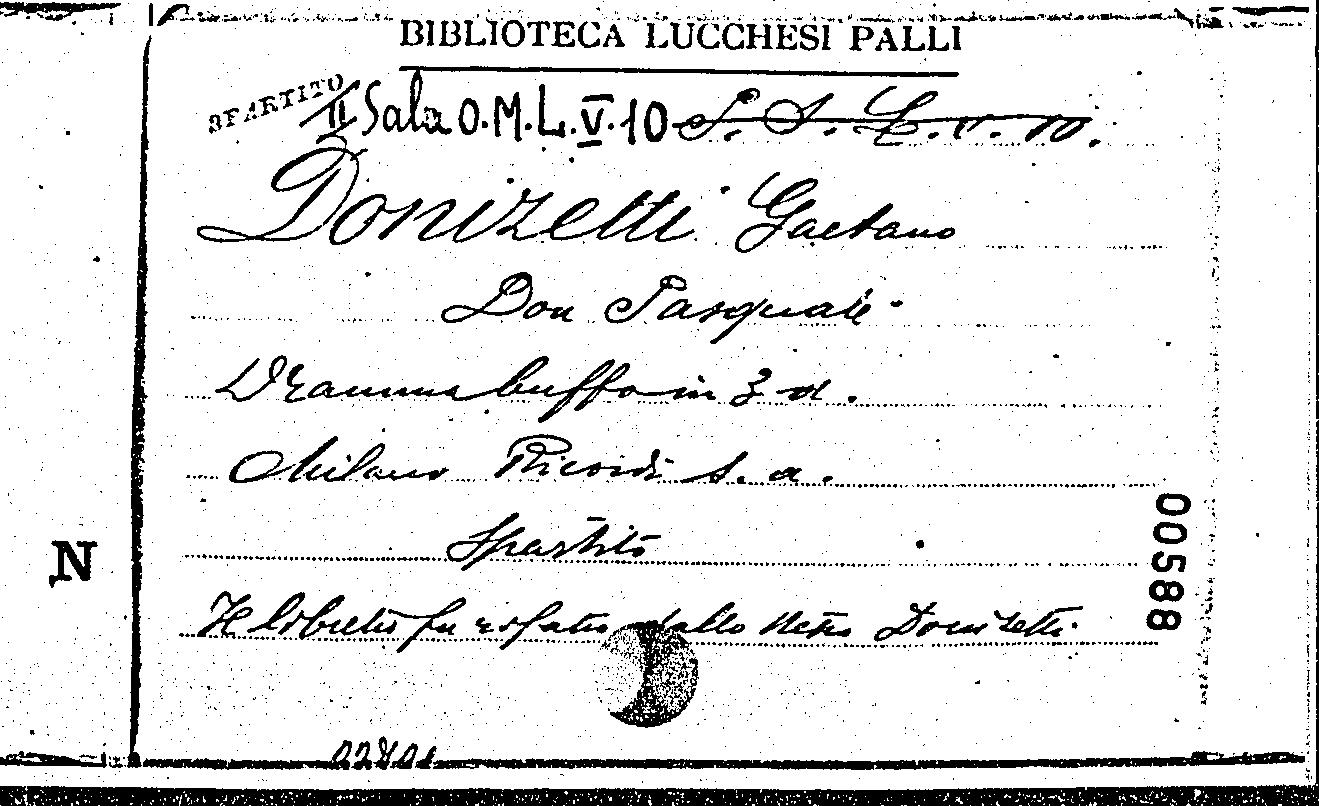 BIBLIOTECA LUCCHESI PALLI
SPARTITO
II Sala O.M.L.V.10 S. S. L. v. 10.
Donizetti Gaetano
Don Pasquale
Dramma buffo in 3 a.
Milano Ricordi s. a.
Spartito
Il libretto fu rifatto dallo stesso Donizetti.
N
00588